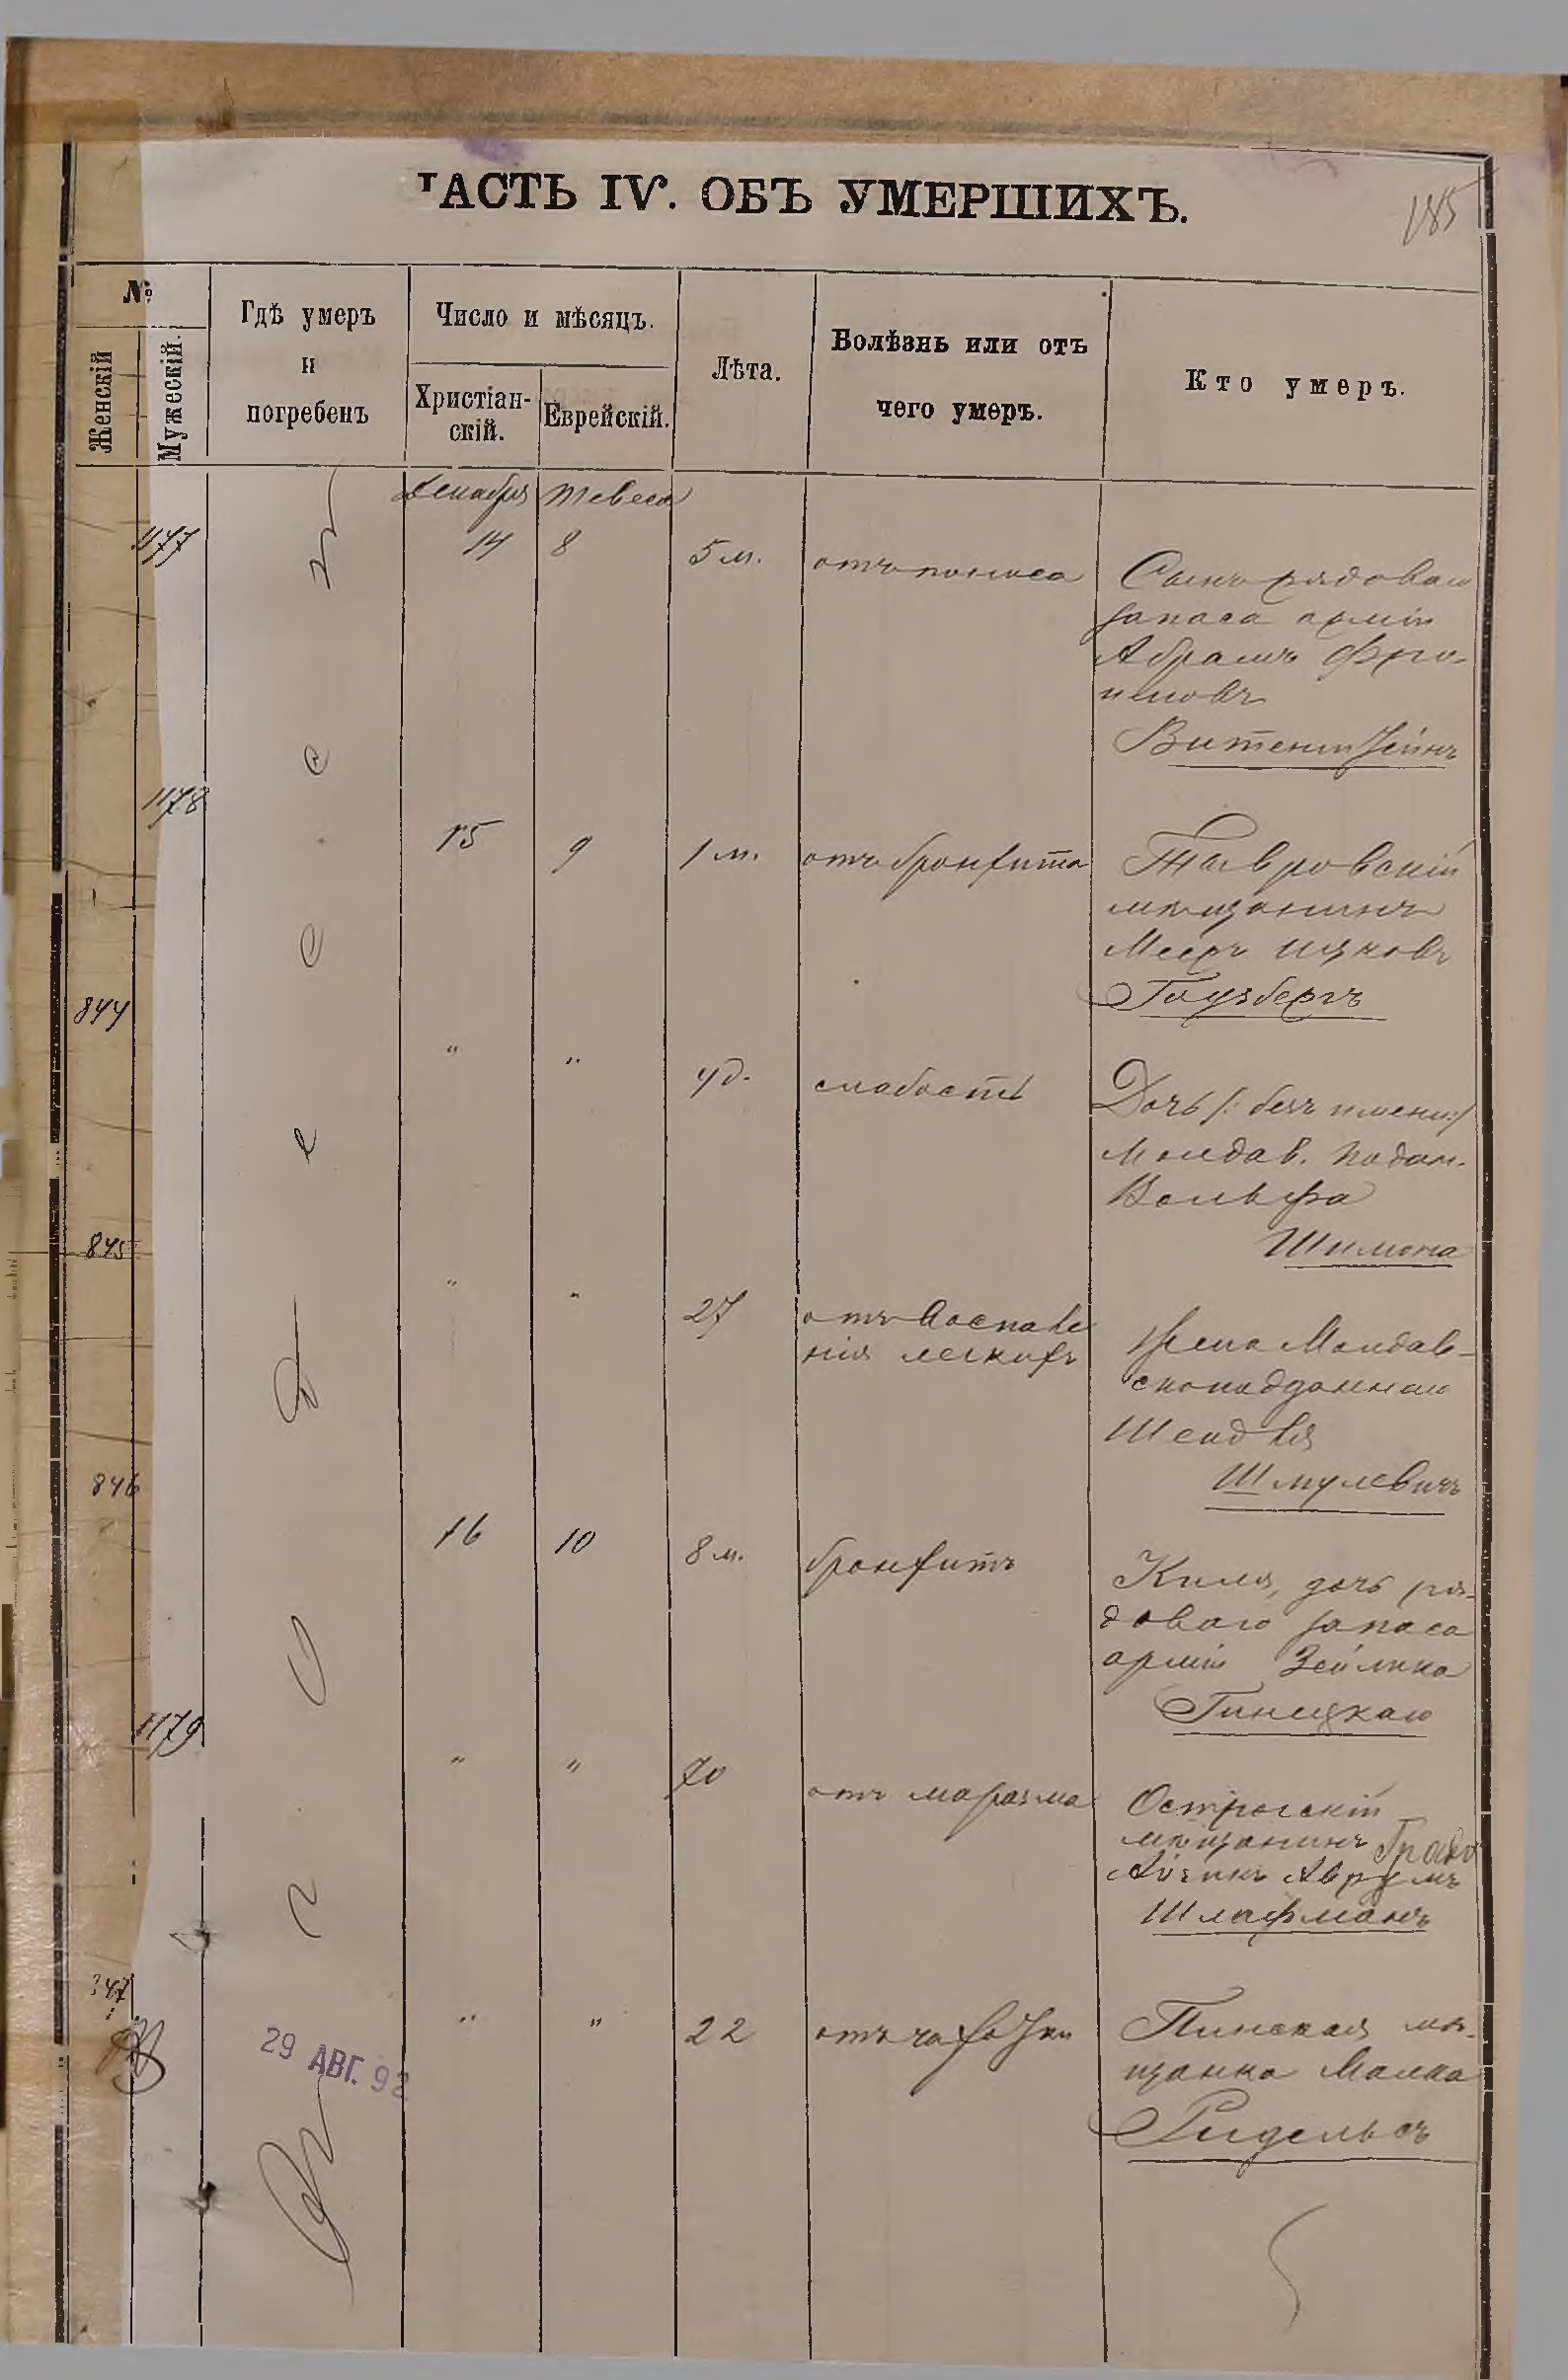 ЧАСТЬ IV. ОБЪ УМЕРШИХЪ.
185
№
Женскій
Мужескій.
Гдѣ умеръ
и
погребенъ
Число и мѣсяцъ.
Христіан-
скій.
Еврейскій.
Лѣта.
Болѣзнь или отъ
чего умеръ.
Кто умеръ.
Декабря Тевеса
1177 14 8 5 м. отъ поноса
Сынъ рядоваго
запаса арміи
Абрамъ Фро-
имовъ
Витенштейнъ
1178 15 9 1 м. отъ бронхита
мѣщанинъ
Мееръ Ицковъ
Гоузбергъ
844 " " 4 д. слабость
Дочь /: безъ имени :/
Молдав. подан.
Вольфа
Шимона
845 " " 27 отъ воспале
нія легкихъ
Жена Молдав-
скоподданнаго
Шендля
Шмулевичъ
846 16 10 8 м. бронхитъ
Киля, дочь ря-
доваго запаса
арміи Зейлика
Гинецкаго
1179 " " 70 отъ маразма
Острогскій
мѣщанинъ
Аврумъ
Шлафманъ
847 " " 22 отъ чахотки
Пинская мѣ-
щанка Малка
Ридельсъ
О д е с с а
29 АВГ. 92